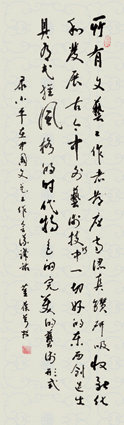 所有文藝工作者都应当认真鑽研吸收融化
和發展古今中外藝術技巧中一切好的东西创造出
具有民族風格的时代特色的完美的藝術形式
录小平在中国文艺工作